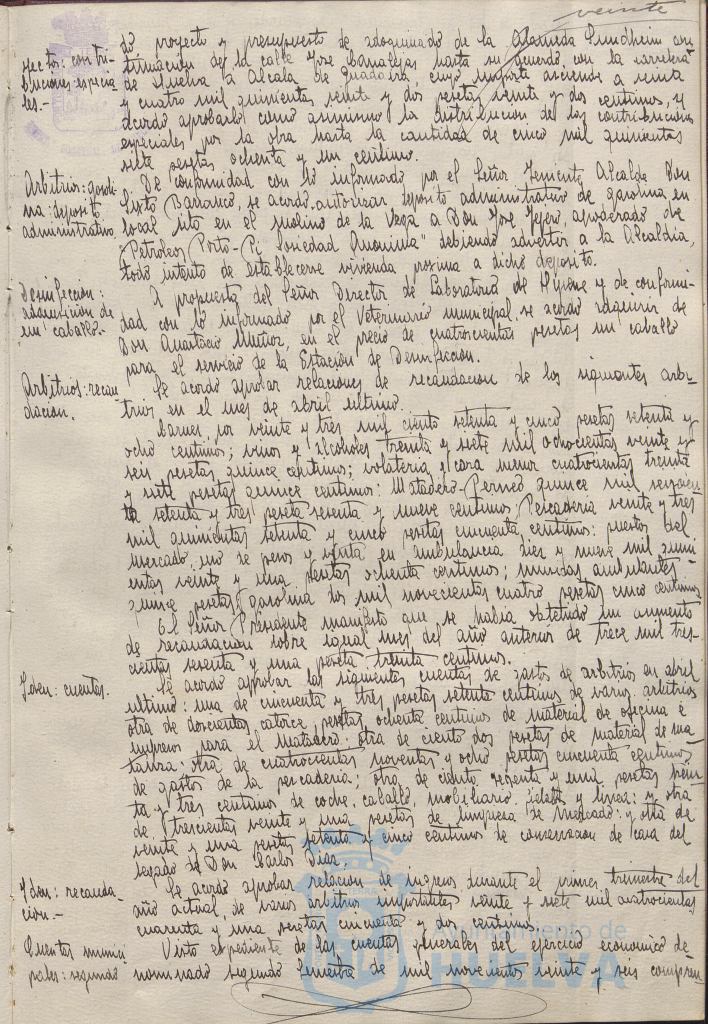 veinte
do proyecto y presupuesto de adoquinado de la Alameda Sundheim con
Sector: contri- tinuación de la calle José Canalejas hasta su acuerdo con la carretera
buciones especia de Huelva a Alcalá de Guadaira, cuyo importe asciende a
les.- y cuatro mil quinientas veinte y dos pesetas veinte y dos centimos, se
acordó aprobarlo como asimismo la distribucion de las contribuciones
especiales por la obra hasta la cantidad de cinco mil quinientas
siete pesetas ochenta y un centimo.
Arbitrios: gasoli De conformidad con lo informado por el Señor Teniente Alcalde Don
na: deposito Sixto Barranco, se acordó autorizar deposito administrativo de gasolina en
administrativo local sito en el Molino de la Vega a Don José Tejero, apoderado de
"Petroleos Porto-Pi Sociedad Anonima" debiendo advertir a la Alcaldia,
todo intento de establecerse vivienda proxima a dicho deposito.
Desinfección: A propuesta del Señor Director de Laboratorio de Higiene y de conformi-
adquisición de dad con lo informado por el Veterinario municipal se acordó adquirir de
un caballo.- Don Anastacio Muñoz, en el precio de cuatrocientas pesetas un caballo
para el servicio de la Estación de Desinfección.
Arbitrios: recau Se acordó aprobar relaciones de recaudacion de los siguientes arbi-
dacion. trios en el mes de abril ultimo.
Carnes por veinte y tres mil ciento setenta y cinco pesetas setenta y
ocho centimos; vinos y alcoholes treinta y siete mil ochocientas veinte y
seis pesetas quince centimos; volateria y caza menor cuatrocientas treinta
y siete pesetas quince centimos: Matadero-Perneo quince mil seiscien
ta setenta y tres peseta sesenta y nueve centimos; Pescaderia veinte y tres
mil quinientas setenta y cinco pesetas cincuenta centimos: puestos del
Mercado, uso de pesos y venta en ambulancia diez y nueve mil quini
entas veinte y una pesetas ochenta centimos; musicas ambulantes
quince pesetas; gasolina dos mil novecientas cuatro pesetas cinco centimos
El Señor Presidente manifestó que se habia obtenido un aumento
de recaudacion sobre igual mes del año anterior de trece mil tres-
cientas sesenta y una peseta treinta centimos.
Iden: cuentas. Se acordó aprobar las siguientes cuentas de gastos de arbitrios en abril
ultimo: una de cincuenta y tres pesetas setenta centimos de varios arbitrios
otra de doscientas catorce pesetas ochenta centimos de material de oficina é
impresos para el Matadero: otra de ciento dos pesetas de material de ma
tanza: otra de cuatrocientas noventas y ocho pesetas cincuenta centimos
de gastos de la pescaderia; otra de ciento y una pesetas trein
ta y tres centimos de coche, caballo, mobiliario y linea: y otra
de trescientas veinte y una pesetas de limpieza de mercado: y otra de
veinte y una pesetas setenta y cinco centimos de conservacion de casa del
legado de Don Carlos Diaz.
Iden: recauda- Se acordó aprobar relacion de ingresos durante el primer trimestre del
cion.- año actual, de varios arbitrios importantes veinte y siete mil cuatrocientas
cuarenta y una pesetas cincuenta y dos centimos.
Cuentas munici Visto expediente de las cuentas generales del ejercicio economico de-
pales: segundo nominado segundo semestre de mil novecientos veinte y seis compren
Ayuntamiento de
HUELVA